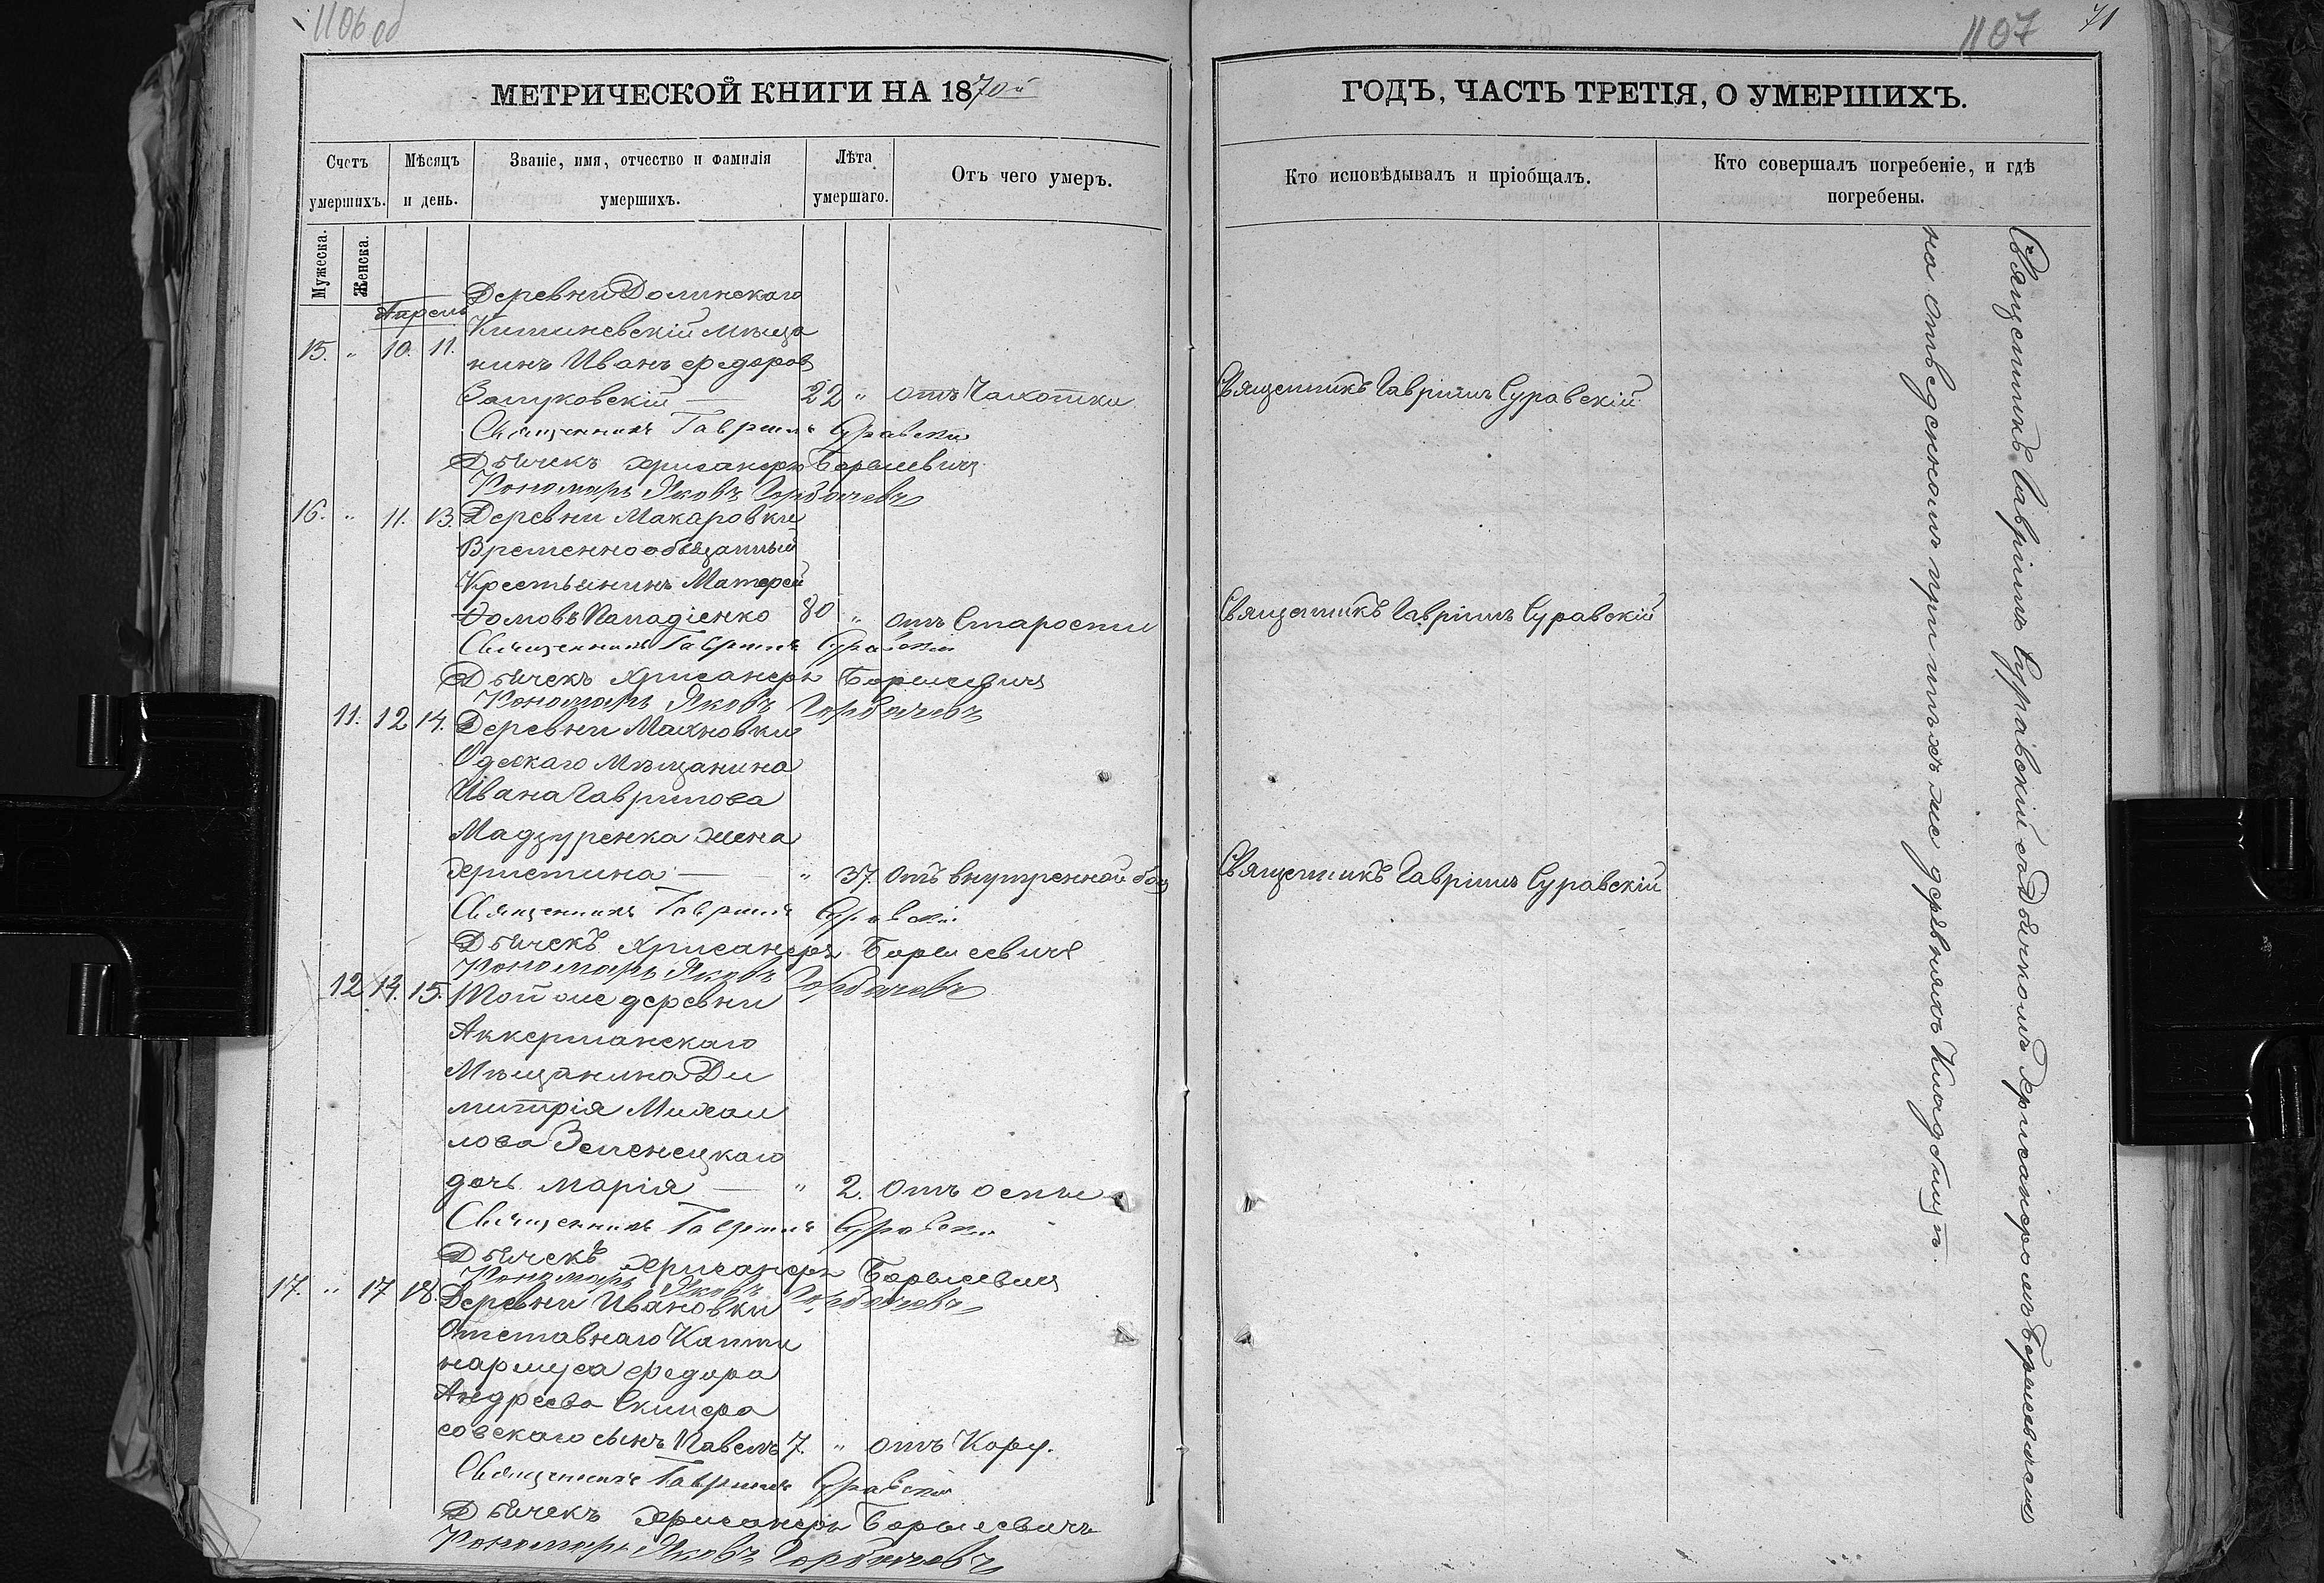 1106 об
МЕТРИЧЕСКОЙ КНИГИ НА 1870й
Счетъ умершихъ.
Мѣсяцъ и день.
Званіе, имя, отчество и фамилія умершихъ.
Лѣта умершаго.
Отъ чего умеръ.
Мужеска.
Женска.
Апрель
Деревни Долинскаго
Кишиневскій мѣща
15. " 10. 11.
нинъ Иванъ Федоров
Залуковскій — 22 " отъ Чахотки
Священникъ Гавріилъ Суравскій
Дьячекъ Хрисанфъ Борысевичъ
Пономарь Яковъ Горбачевъ
16. " 11. 13. Деревни Макаровки
Временнообязанный
Крестьянинъ Матфей
Фомовъ Пападіенко 80 " отъ Старости
Священникъ Гавріилъ Суравскій
Дьячекъ Хрисанфъ Борысевичъ
Пономарь Яковъ Горбачевъ
11. 12 14. Деревни Махновки
Одескаго Мѣщанина
Ивана Гаврилова
Мадзуренка жена
Христина — " 37. отъ внутренной бол
Священникъ Гавріилъ Суравскій
Дьячекъ Хрисанфъ Борысевичъ
Пономарь Яковъ Горбачевъ
12 14. 15. Той же деревни
Аккерманскаго
Мѣщанина Ди
митрія Михаи
лова Зеленецкаго
дочь Марія — " 2. отъ оспы
Священникъ Гавріилъ Суравскій
Дьячекъ Хрисанфъ Борысевичъ
Пономарь Яковъ Горбачевъ
17. " 17 18. Деревни Ивановки
Отставнаго Капти
нармуса Федора
Андреева
совскаго сынъ Павелъ 7. " отъ Кору.
Священникъ Гавріилъ Суравскій
Дьячекъ Хрисанфъ Борысевичъ
Пономарь Яковъ Горбачевъ
1107 71
ГОДЪ, ЧАСТЬ ТРЕТІЯ, О УМЕРШИХЪ.
Кто исповѣдывалъ и пріобщалъ.
Кто совершалъ погребеніе, и гдѣ
погребены.
Священникъ Гавріилъ Суравскій
Священникъ Гавріилъ Суравскій
Священникъ Гавріилъ Суравскій
Священникъ Гавріилъ Суравскій съ Дьячкомъ Хрисанфомъ Борысевичемъ
на отведенномъ при тѣхъ же деревняхъ Кладбищѣ.